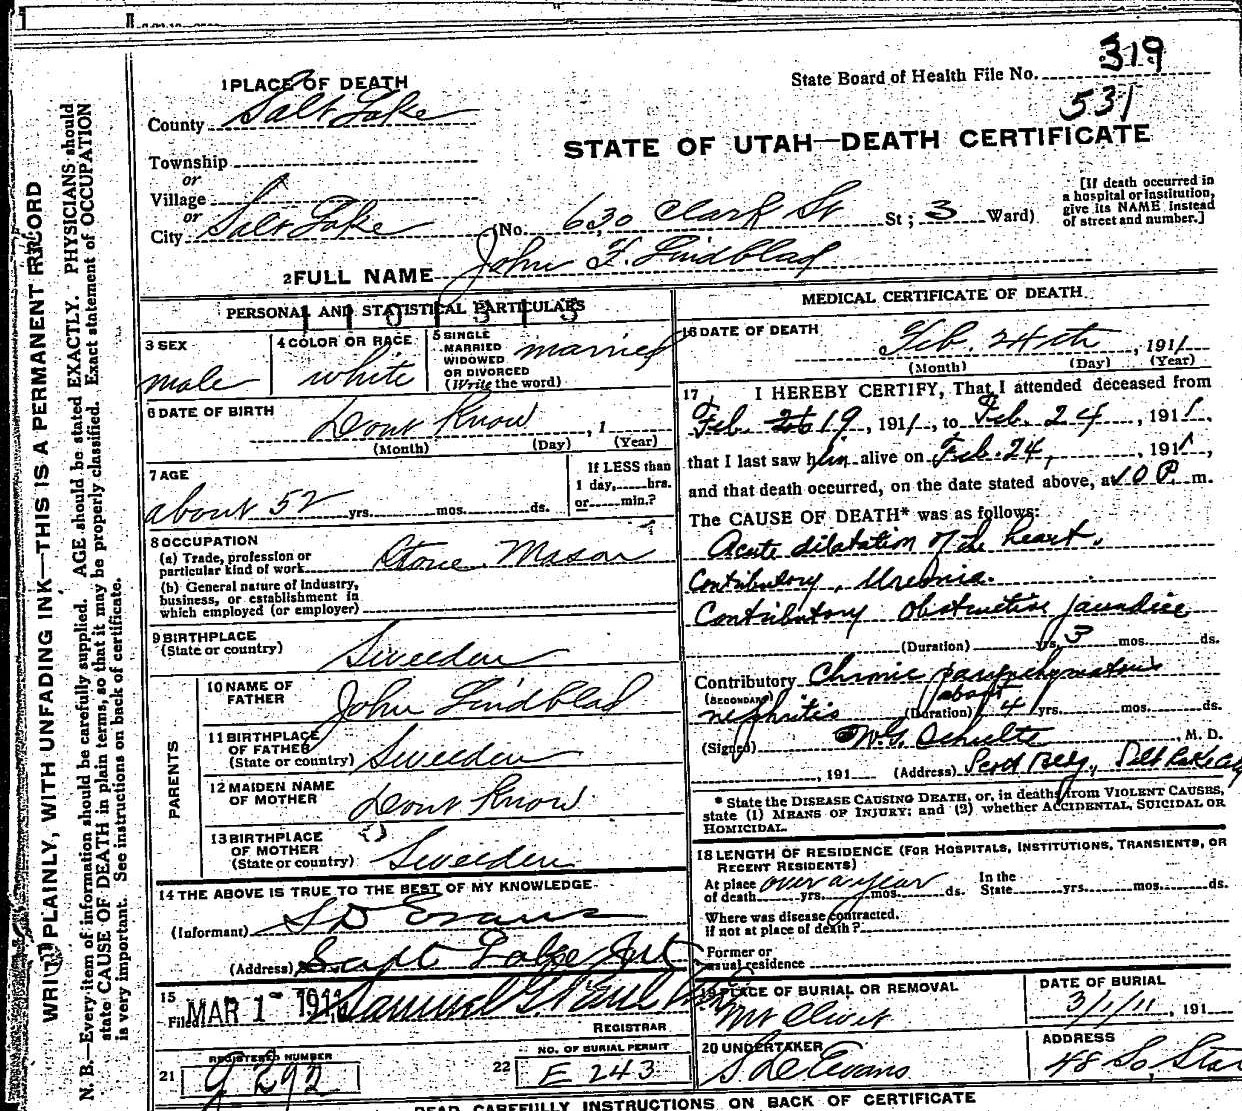 State Board of Health File No. 319
531
1 PLACE OF DEATH
County Salt Lake
STATE OF UTAH—DEATH CERTIFICATE
Township
or
Village
or
City Salt Lake (No. 630 Clark St St; 3 Ward)
[If death occurred in
a hospital or institution,
give its NAME instead
of street and number.]
2 FULL NAME John F. Lindblad
PERSONAL AND STATISTICAL PARTICULARS
3 SEX
male
4 COLOR OR RACE
white
5 SINGLE
MARRIED
WIDOWED
OR DIVORCED
(Write the word)
married
6 DATE OF BIRTH
Dont Know , 1
(Month) (Day) (Year)
7 AGE
about 52 yrs. mos. ds.
If LESS than
1 day, hrs.
or min.?
8 OCCUPATION
(a) Trade, profession or
particular kind of work Stone Mason
(b) General nature of industry,
business, or establishment in
which employed (or employer)
9 BIRTHPLACE
(State or country) Sweeden
PARENTS
10 NAME OF
FATHER John Lindblad
11 BIRTHPLACE
OF FATHER
(State or country) Sweeden
12 MAIDEN NAME
OF MOTHER Dont Know
13 BIRTHPLACE
OF MOTHER
(State or country) Sweeden
14 THE ABOVE IS TRUE TO THE BEST OF MY KNOWLEDGE
(Informant) S D Evans
(Address) Salt Lake
15
Filed MAR 1 - 1911 Samuel G. Paul
REGISTRAR
21 REGISTERED NUMBER
9292
22 NO. OF BURIAL PERMIT
E 243
MEDICAL CERTIFICATE OF DEATH
16 DATE OF DEATH
Feb. 24th , 1911
(Month) (Day) (Year)
17 I HEREBY CERTIFY, That I attended deceased from
Feb. 19, 1911, to Feb. 24, 1911,
that I last saw him alive on Feb. 24, , 1911,
and that death occurred, on the date stated above, at 10 P. m.
The CAUSE OF DEATH* was as follows:
Acute dilatation of the heart.
Contributory, Uremia.
Contributory Obstructive jaundice
(Duration) yrs. 3 mos. ds.
Contributory Chronic parenchymatous
(SECONDARY)
nephritis (Duration) about 4 yrs. mos. ds.
(Signed) W.G. Schulte, M. D.
, 191 (Address) Scott Bldg., Salt Lake City
* State the DISEASE CAUSING DEATH, or, in deaths from VIOLENT CAUSES,
state (1) MEANS OF INJURY; and (2) whether ACCIDENTAL, SUICIDAL OR
HOMICIDAL.
18 LENGTH OF RESIDENCE (FOR HOSPITALS, INSTITUTIONS, TRANSIENTS, OR
RECENT RESIDENTS)
At place over a year In the
of death yrs. mos. ds. State yrs. mos. ds.
Where was disease contracted,
if not at place of death?
Former or
usual residence
19 PLACE OF BURIAL OR REMOVAL
Mt Olivet
DATE OF BURIAL
3/1/11 , 191
20 UNDERTAKER
S D Evans
ADDRESS
48 So, Sta
READ CAREFULLY INSTRUCTIONS ON BACK OF CERTIFICATE
WRITE PLAINLY, WITH UNFADING INK—THIS IS A PERMANENT RECORD
N. B.—Every item of information should be carefully supplied. AGE should be stated EXACTLY. PHYSICIANS should
state CAUSE OF DEATH in plain terms, so that it may be properly classified. Exact statement of OCCUPATION
is very important. See instructions on back of certificate.